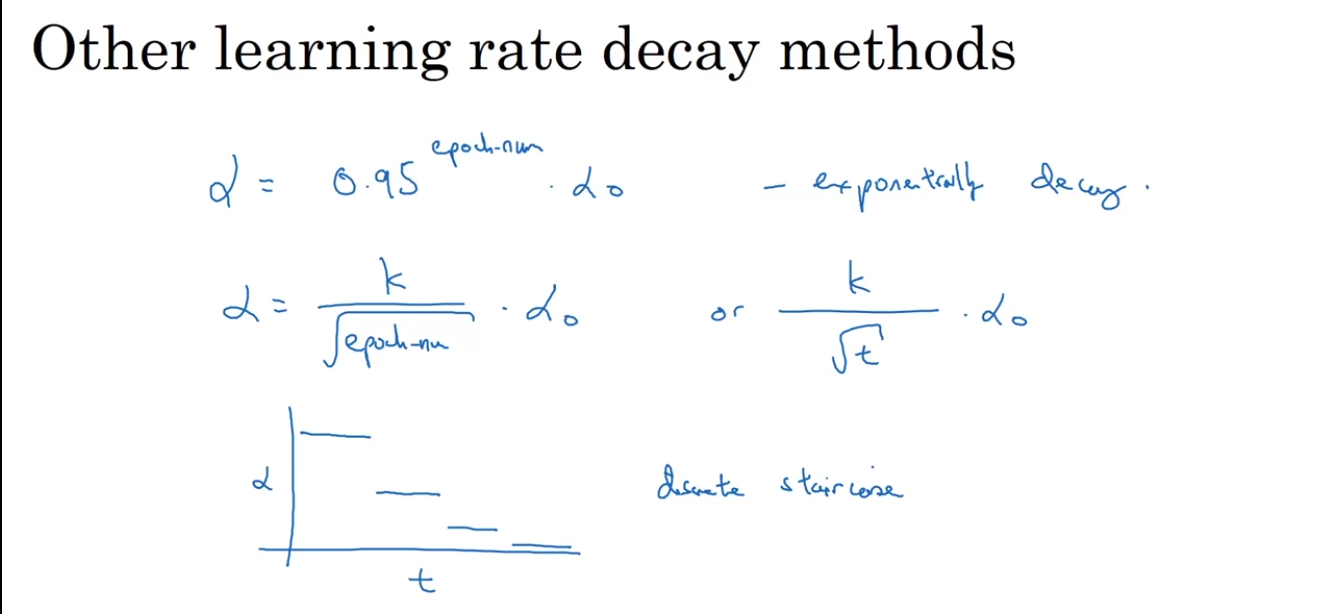 Other learning rate decay methods
α = 0.95^epoch-num · α₀ - exponentially decay.
α = k / √epoch-nu · α₀ or k / √t · α₀
α discrete staircase
t